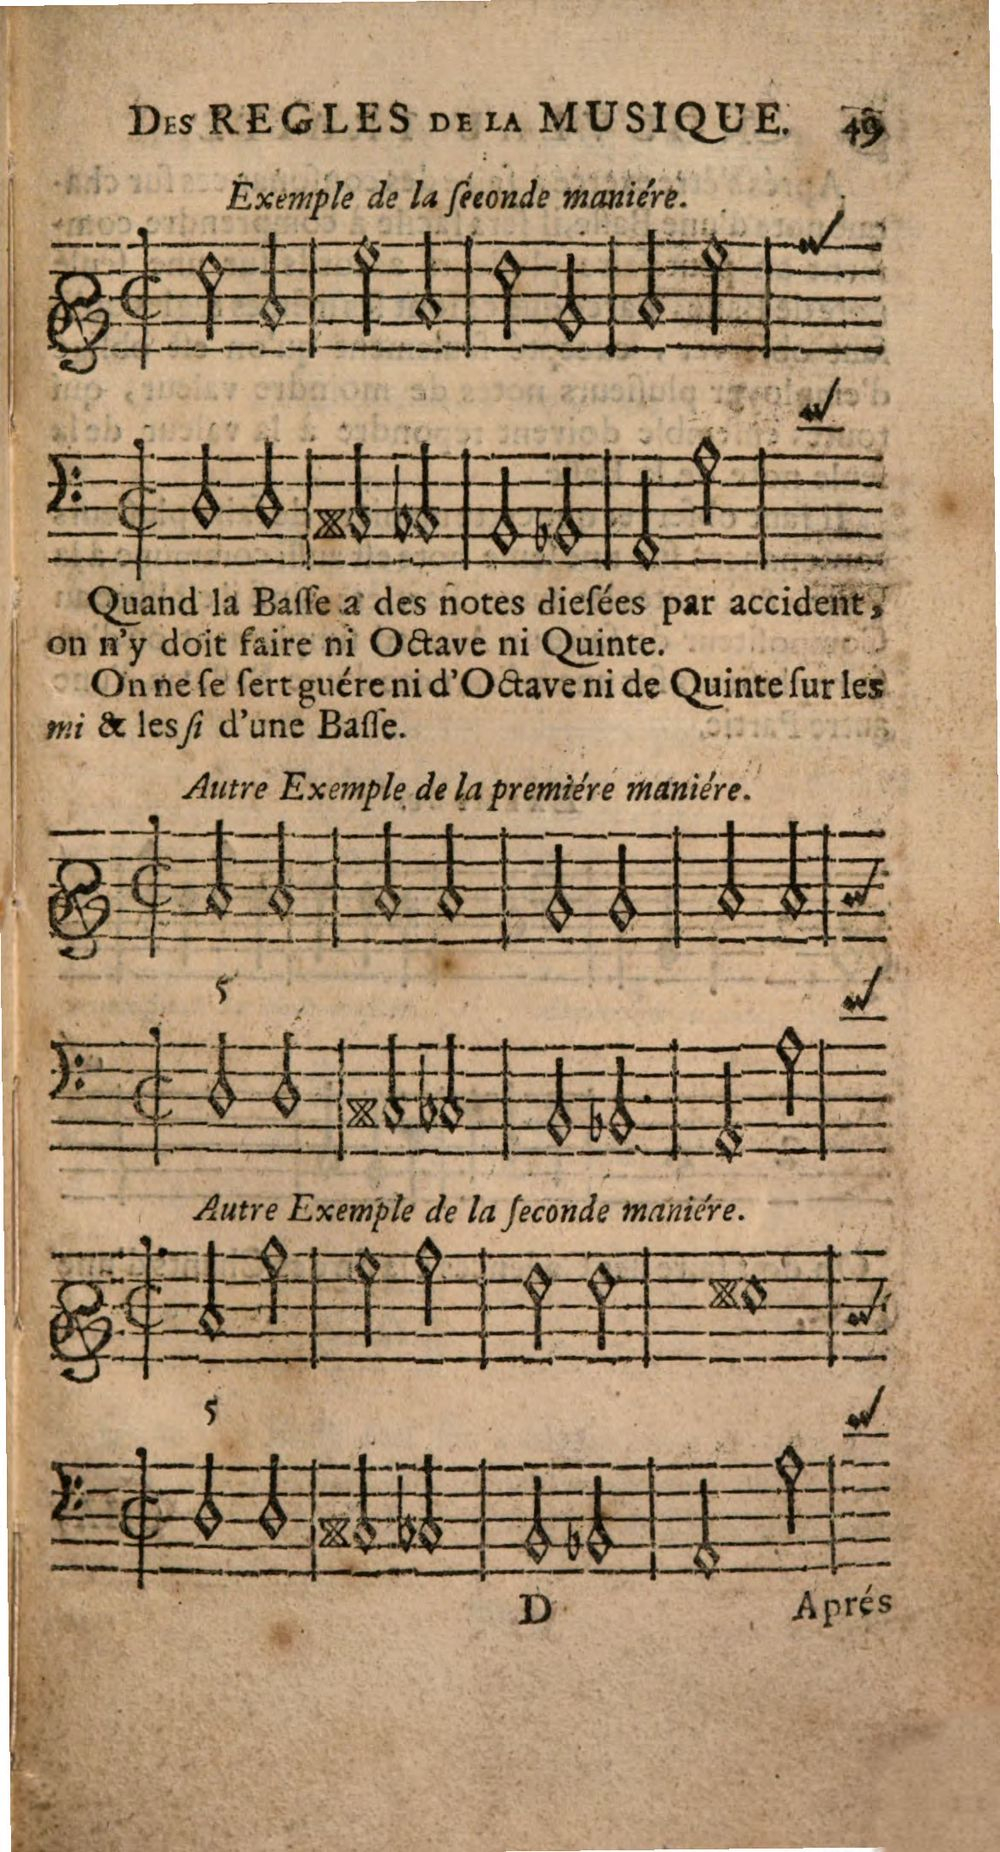 DES REGLES DE LA MUSIQUE. 49
Exemple de la ſeconde maniére.
Quand la Baſſe a des notes dieſées par accident,
on n'y doit faire ni Octave ni Quinte.
On ne ſe ſert guére ni d'Octave ni de Quinte ſur les
mi & les ſi d'une Baſſe.
Autre Exemple de la premiére maniére.
5
Autre Exemple de la ſeconde maniére.
5
D Aprés